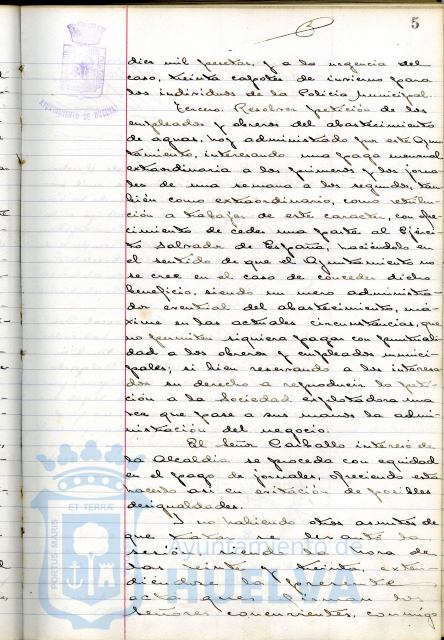 5
diez mil pesetas, y a la urgencia del
caso, treinta capotes de invierno para
los individuos de la Policía Municipal.
Tercero. Resolver petición de los
empleados y obreros del abastecimiento
de aguas, hoy administrado por este Ayun
tamiento, interesando una paga mensual
extraordinaria a los primeros y los jorna
les de una semana a los segundos, tam
bién como extraordinario, como retribu
ción a trabajos de este caracter, con ofre
cimiento de ceder una parte al Ejérci
to Salvador de España, haciéndolo en
el sentido de que el Ayuntamiento no
se cree en el caso de conceder dicho
beneficio, siendo un mero administra
dor eventual del abastecimiento, má
xime en las actuales circunstancias, que
no permiten siquiera pagar con puntuali
dad a los obreros y empleados munici
pales; si bien reservando a los interesa
dos su derecho a reproducir la peti
ción a la Sociedad explotadora una
vez que pase a sus manos la admi
nistración del negocio.
El Señor Carballo interesó de
la Alcaldía se proceda con equidad
en el pago de jornales, ofreciendo esta
hacerlo así en evitación de posibles
desigualdades.
Y no habiendo otros asuntos de
que tratar se levantó la
sesión siendo la hora de
las veinte y treinta, exten
diéndose la presente
acta que firman los
Señores concurrentes, conmigo
AYUNTAMIENTO DE HUELVA
PORTUS MARIS
ET TERRÆ
Ayuntamiento de
HUELVA